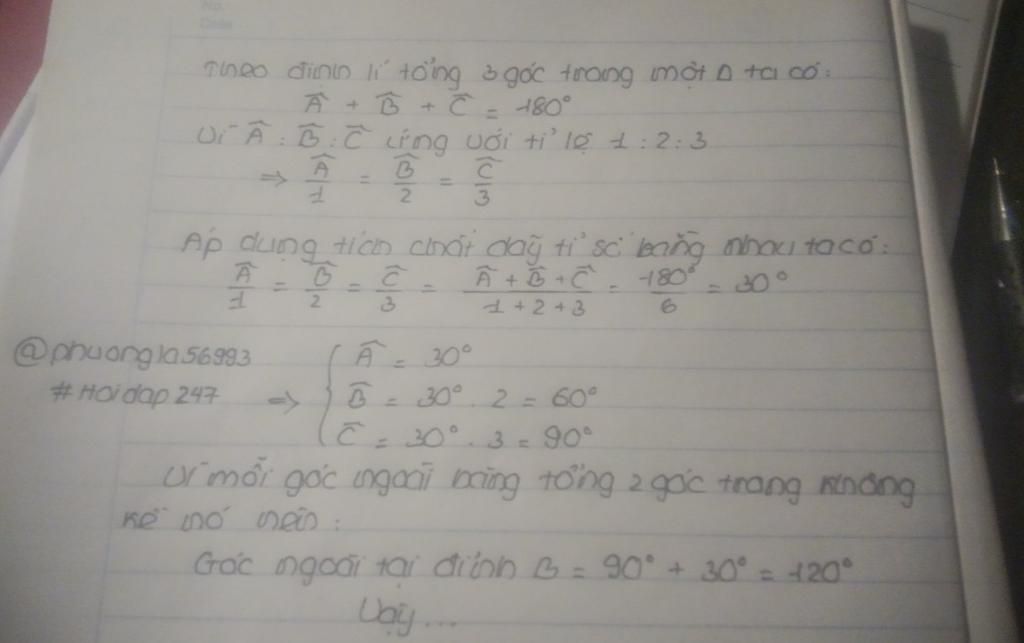 No.
Date
Theo định lí tổng 3 góc trong một Δ ta có:
Â + B̂ + Ĉ = 180°
Vì Â : B̂ : Ĉ ứng với tỉ lệ 1 : 2 : 3
⇒ Â/1 = B̂/2 = Ĉ/3
Áp dụng tích chất dãy tỉ số bằng nhau ta có:
Â/1 = B̂/2 = Ĉ/3 = (Â + B̂ + Ĉ)/(1 + 2 + 3) = 180°/6 = 30°
@phuongla56993
#Hoidap247
⇒ { Â = 30°
B̂ = 30° . 2 = 60°
Ĉ = 30° . 3 = 90°
Vì mỗi góc ngoài bằng tổng 2 góc trong không
kề nó nên:
Góc ngoài tại đỉnh B = 90° + 30° = 120°
Vậy...